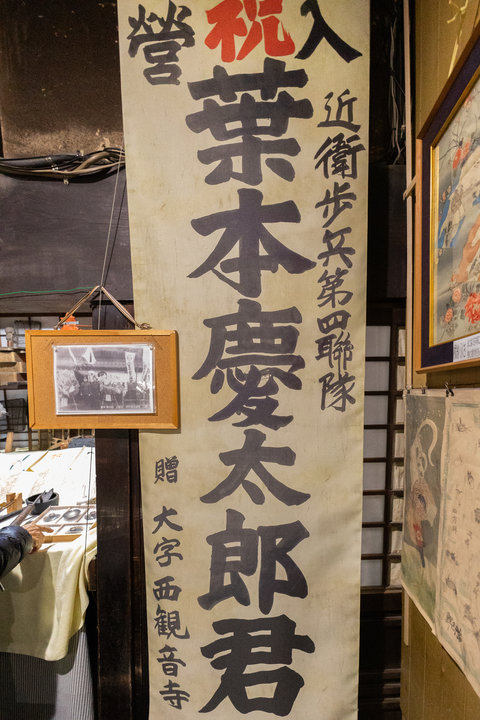 入祝營
近衛歩兵第四聯隊
葉本慶太郎君
贈 大字西観音寺